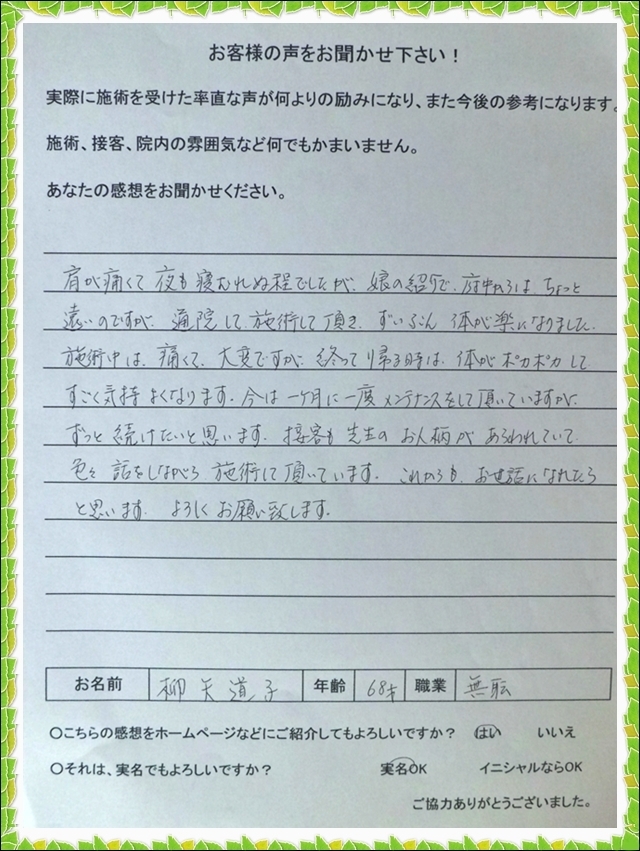 お客様の声をお聞かせ下さい！
実際に施術を受けた率直な声が何よりの励みになり、また今後の参考になります。
施術、接客、院内の雰囲気など何でもかまいません。
あなたの感想をお聞かせください。
肩が痛くて 夜も寝むれぬ程でしたが、娘の紹介で、府中からは ちょっと
遠いのですが、通院して、施術して頂き、ずいぶん 体が楽になりました。
施術中は、痛くて、大変ですが、終って帰る時は、体がポカポカして
すごく気持よくなります。今は一ヶ月に一度メンテナンスをして頂いていますが、
ずっと続けたいと思います。接客も先生のお人柄があらわれていて
色々話をしながら施術して頂いています。これからも、お世話になれたら
と思います。よろしくお願い致します。
お名前 柳矢道子 年齢 68才 職業 無職
〇こちらの感想をホームページなどにご紹介してもよろしいですか？ はい いいえ
〇それは、実名でもよろしいですか？ 実名OK イニシャルならOK
ご協力ありがとうございました。